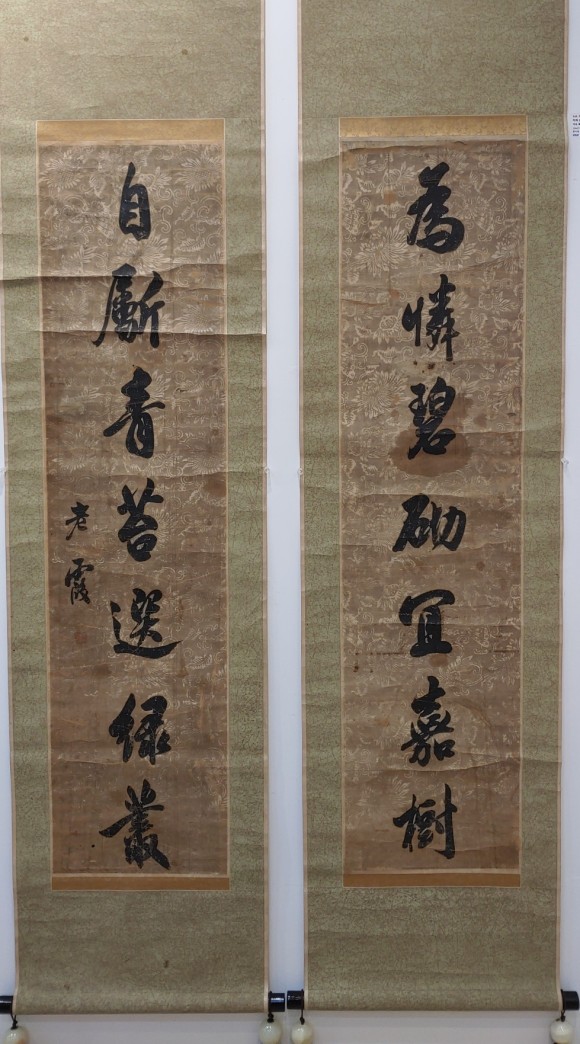 為憐碧砌宜嘉樹
自斸青苔選綠叢
老霞